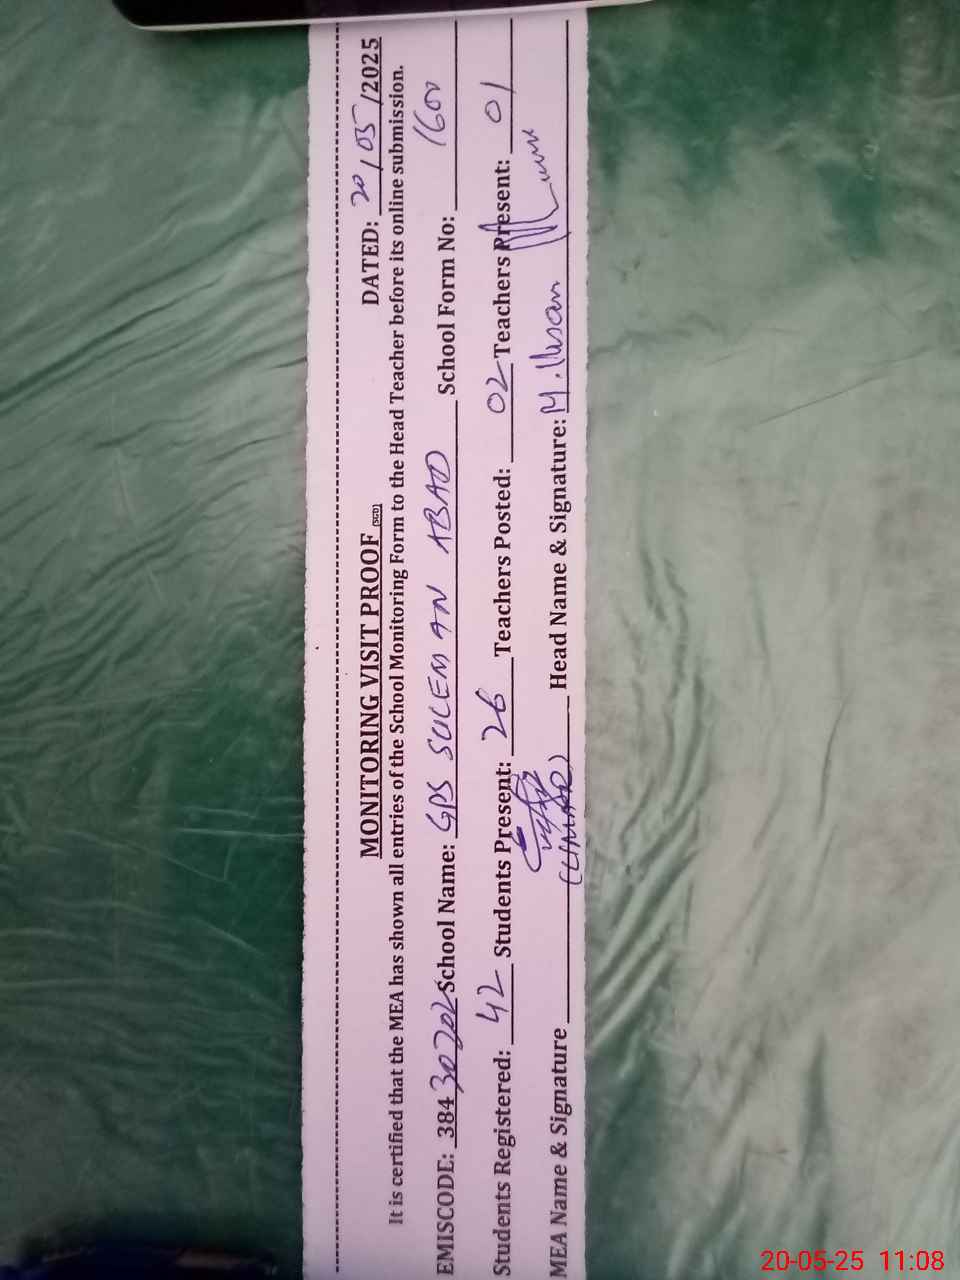 MONITORING VISIT PROOF (SGD) DATED: 20/05/2025
It is certified that the MEA has shown all entries of the School Monitoring Form to the Head Teacher before its online submission.
EMISCODE: 38430202 School Name: GPS SULEMAN ABAD School Form No: 1600
Students Registered: 42 Students Present: 26 Teachers Posted: 02 Teachers Present: 01
MEA Name & Signature (UMAR) Head Name & Signature: M. Ihsan
20-05-25 11:08